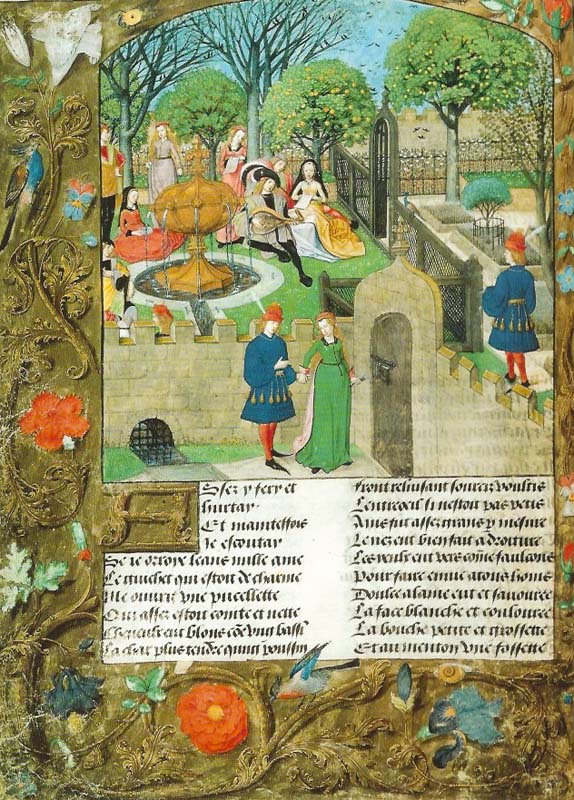 Assez y fery et
hurtay
Et maintesfois
Je escoutay
Se ie orroye leans nulle ame
Le guichet qui estoit de charme
Me ouurit vne pucellette
Qui assez estoit cointe et nette
Cheueulx eut blons cōe vng bassī
La char plus tendre quūg poussin
Front reluisant sourciz voultis
Lentreoeil si nestoit pas petis
Ains fut assez grans p mesure
Le nez eut bien fait a droiture
Les yeulx eut vers cōme faulcons
Pour faire enuie a homs
Doulce alaine eut et sauouree
La face blanche et coulouree
La bouche petite et grossette
Et au menton vne fossette